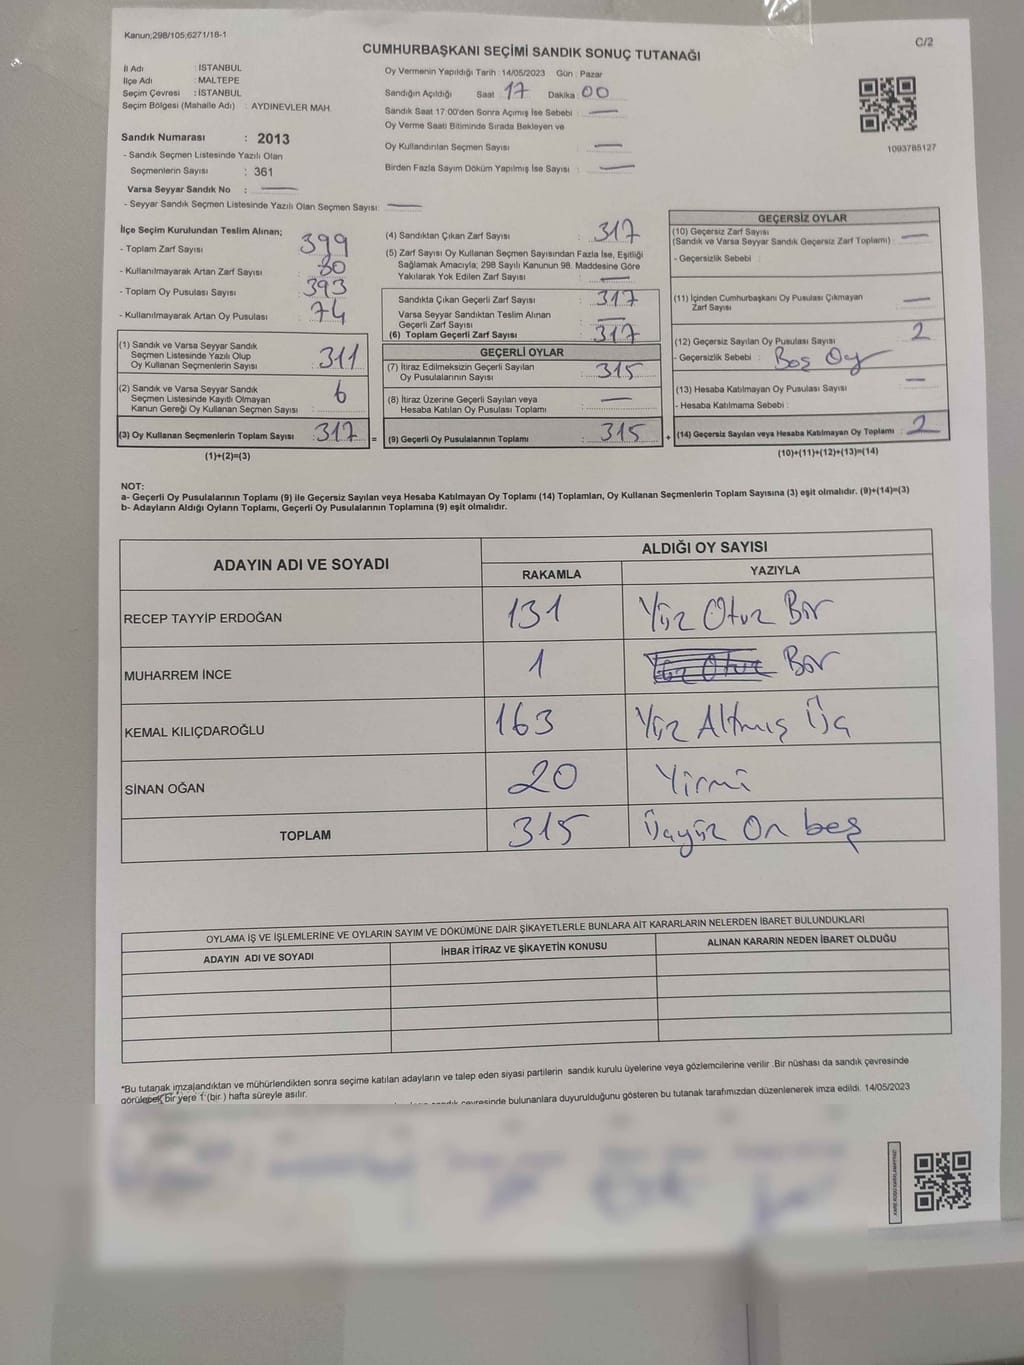 Kanun;298/105;6271/18-1
C/2
CUMHURBAŞKANI SEÇİMİ SANDIK SONUÇ TUTANAĞI
İl Adı : İSTANBUL
İlçe Adı : MALTEPE
Seçim Çevresi : İSTANBUL
Seçim Bölgesi (Mahalle Adı) : AYDINEVLER MAH.
Sandık Numarası : 2013
- Sandık Seçmen Listesinde Yazılı Olan
Seçmenlerin Sayısı : 361
Varsa Seyyar Sandık No : —
- Seyyar Sandık Seçmen Listesinde Yazılı Olan Seçmen Sayısı: —
Oy Vermenin Yapıldığı Tarih : 14/05/2023 Gün : Pazar
Sandığın Açıldığı Saat : 17 Dakika : 00
Sandık Saat 17:00'den Sonra Açımış İse Sebebi : —
Oy Verme Saati Bitiminde Sırada Bekleyen ve
Oy Kullandırılan Seçmen Sayısı : —
Birden Fazla Sayım Döküm Yapılmış İse Sayısı : —
1093785127
İlçe Seçim Kurulundan Teslim Alınan;
- Toplam Zarf Sayısı : 399
- Kullanılmayarak Artan Zarf Sayısı : 80
- Toplam Oy Pusulası Sayısı : 393
- Kullanılmayarak Artan Oy Pusulası : 74
(1) Sandık ve Varsa Seyyar Sandık
Seçmen Listesinde Yazılı Olup
Oy Kullanan Seçmenlerin Sayısı : 311
(2) Sandık ve Varsa Seyyar Sandık
Seçmen Listesinde Kayıtlı Olmayan
Kanun Gereği Oy Kullanan Seçmen Sayısı : 6
(3) Oy Kullanan Seçmenlerin Toplam Sayısı : 317
(1)+(2)=(3)
(4) Sandıktan Çıkan Zarf Sayısı : 317
(5) Zarf Sayısı Oy Kullanan Seçmen Sayısından Fazla İse, Eşitliği
Sağlamak Amacıyla; 298 Sayılı Kanunun 98. Maddesine Göre
Yakılarak Yok Edilen Zarf Sayısı : —
Sandıkta Çıkan Geçerli Zarf Sayısı : 317
Varsa Seyyar Sandıktan Teslim Alınan
Geçerli Zarf Sayısı : —
(6) Toplam Geçerli Zarf Sayısı : 317
GEÇERLİ OYLAR
(7) İtiraz Edilmeksizin Geçerli Sayılan
Oy Pusulalarının Sayısı : 315
(8) İtiraz Üzerine Geçerli Sayılan veya
Hesaba Katılan Oy Pusulası Toplamı : —
= (9) Geçerli Oy Pusulalarının Toplamı : 315 +
GEÇERSİZ OYLAR
(10) Geçersiz Zarf Sayısı : —
(Sandık ve Varsa Seyyar Sandık Geçersiz Zarf Toplamı)
- Geçersizlik Sebebi :
(11) İçinden Cumhurbaşkanı Oy Pusulası Çıkmayan
Zarf Sayısı : —
(12) Geçersiz Sayılan Oy Pusulası Sayısı : 2
- Geçersizlik Sebebi : Boş Oy
(13) Hesaba Katılmayan Oy Pusulası Sayısı : —
- Hesaba Katılmama Sebebi :
(14) Geçersiz Sayılan veya Hesaba Katılmayan Oy Toplamı : 2
(10)+(11)+(12)+(13)=(14)
NOT:
a- Geçerli Oy Pusulalarının Toplamı (9) ile Geçersiz Sayılan veya Hesaba Katılmayan Oy Toplamı (14) Toplamları, Oy Kullanan Seçmenlerin Toplam Sayısına (3) eşit olmalıdır. (9)+(14)=(3)
b- Adayların Aldığı Oyların Toplamı, Geçerli Oy Pusulalarının Toplamına (9) eşit olmalıdır.
ADAYIN ADI VE SOYADI ALDIĞI OY SAYISI
RAKAMLA YAZIYLA
RECEP TAYYİP ERDOĞAN 131 Yüz Otuz Bir
MUHARREM İNCE 1 Yüz Otuz Bir
KEMAL KILIÇDAROĞLU 163 Yüz Altmış Üç
SİNAN OĞAN 20 Yirmi
TOPLAM 315 Üçyüz On beş
OYLAMA İŞ VE İŞLEMLERİNE VE OYLARIN SAYIM VE DÖKÜMÜNE DAİR ŞİKAYETLERLE BUNLARA AİT KARARLARIN NELERDEN İBARET BULUNDUKLARI
ADAYIN ADI VE SOYADI İHBAR İTİRAZ VE ŞİKAYETİN KONUSU ALINAN KARARIN NEDEN İBARET OLDUĞU
*Bu tutanak imzalandıktan ve mühürlendikten sonra seçime katılan adayların ve talep eden siyasi partilerin sandık kurulu üyelerine veya gözlemcilerine verilir .Bir nüshası da sandık çevresinde
görülecek bir yere 1 (bir ) hafta süreyle asılır.
sandık çevresinde bulunanlara duyurulduğunu gösteren bu tutanak tarafımızdan düzenlenerek imza edildi. 14/05/2023